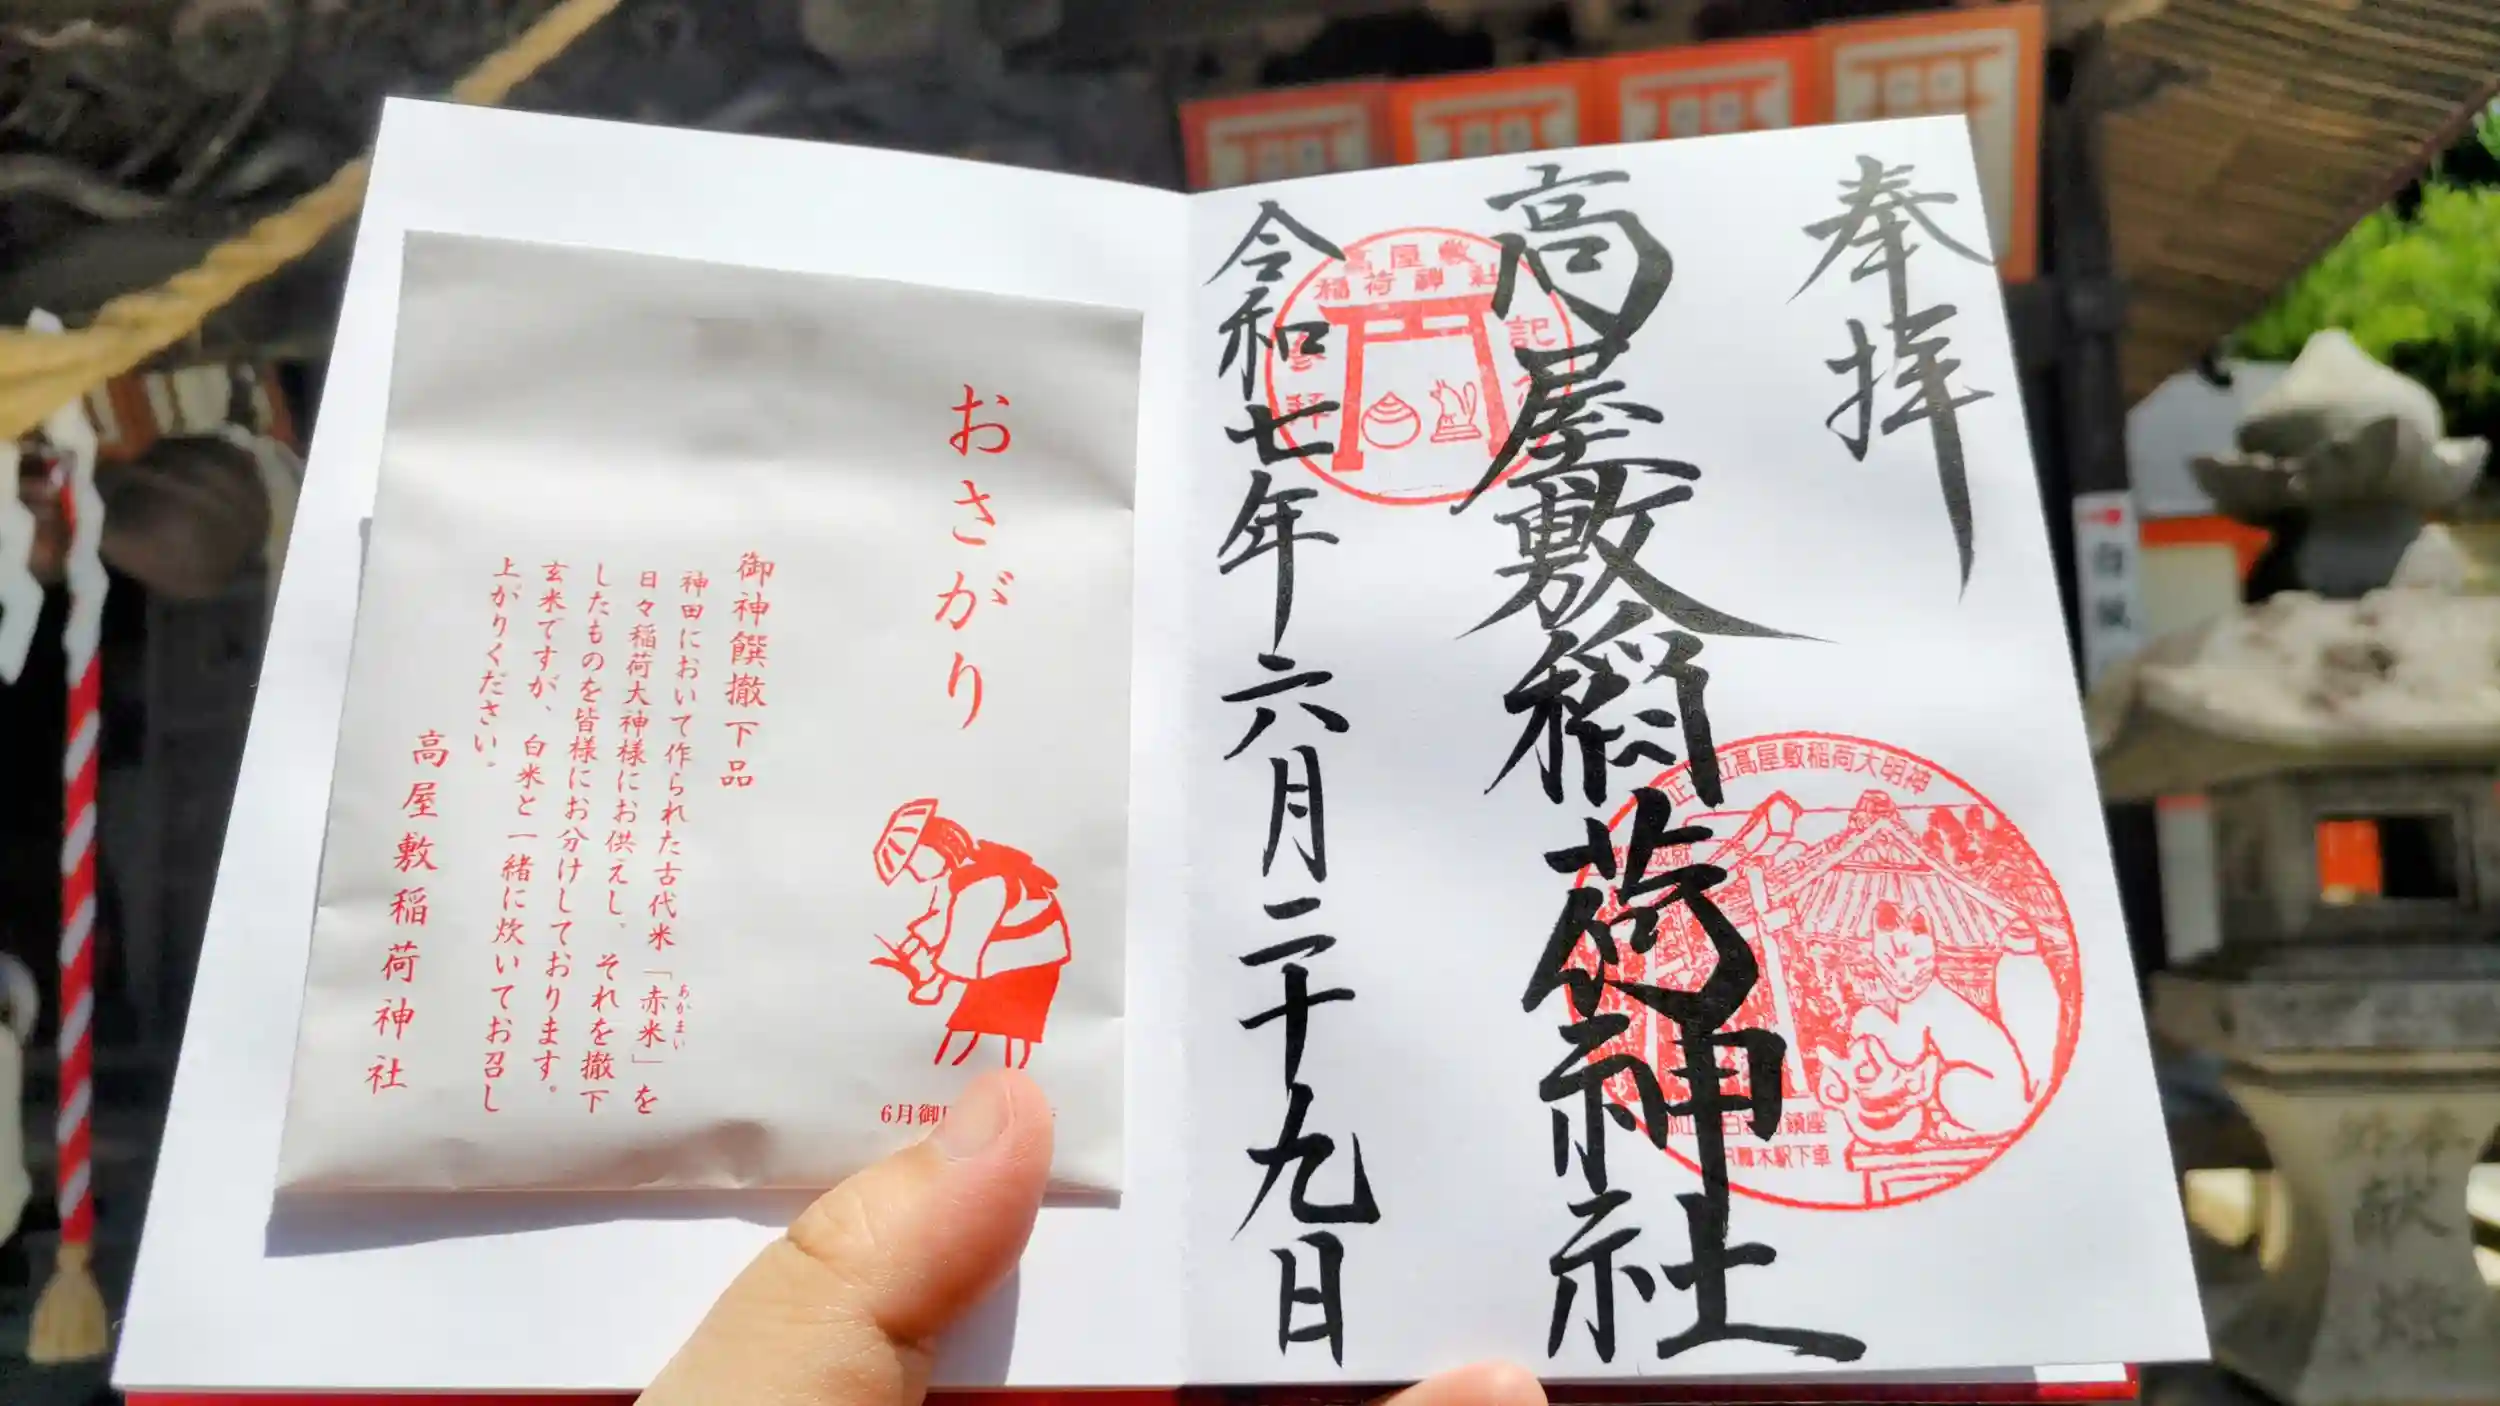 奉拝
高屋敷稲荷神社
令和七年六月二十九日
高屋敷
稲荷神社
参拝
記
位高屋敷稲荷大明神
鎮座
木駅下車
おさがり
御神饌撤下品
神田において作られた古代米「赤米」を
あかまい
日々稲荷大神様にお供えし、それを撤下
したものを皆様にお分けしております。
玄米ですが、白米と一緒に炊いてお召し
上がりください。
高屋敷稲荷神社
6月御